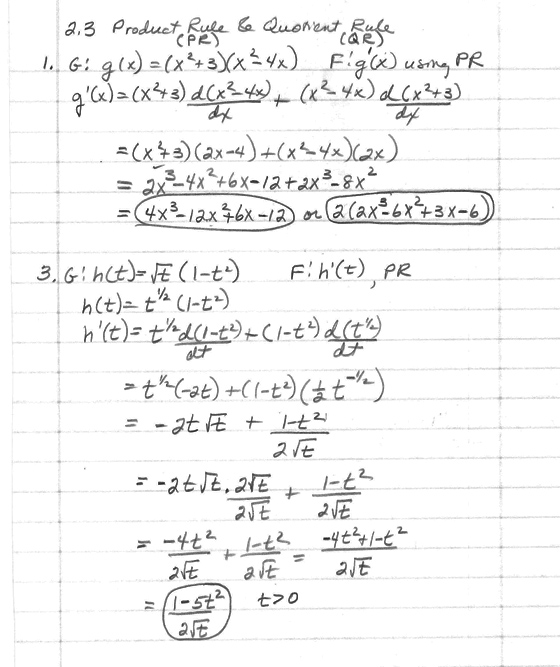 2.3 Product Rule & Quotient Rule
(PR) (QR)
1. G: g(x) = (x²+3)(x²-4x) F: g'(x) using PR
g'(x) = (x²+3) d(x²-4x)/dx + (x²-4x) d(x²+3)/dx
= (x²+3)(2x-4) + (x²-4x)(2x)
= 2x³-4x²+6x-12+2x³-8x²
= 4x³-12x²+6x-12 or 2(2x³-6x²+3x-6)
3. G: h(t) = √t (1-t²) F: h'(t), PR
h(t) = t^1/2 (1-t²)
h'(t) = t^1/2 d(1-t²)/dt + (1-t²) d(t^1/2)/dt
= t^1/2(-2t) + (1-t²)(1/2 t^-1/2)
= -2t√t + 1-t²/2√t
= -2t√t · 2√t/2√t + 1-t²/2√t
= -4t²/2√t + 1-t²/2√t = -4t²+1-t²/2√t
= 1-5t²/2√t t>0